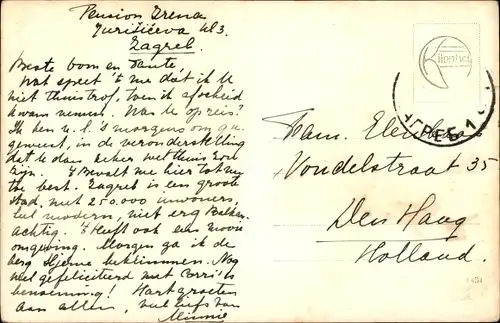 Pension Irena
Jurišićeva ul 3.
Zagreb.
Beste oom en Tante.
Wat speet 't me dat ik U
niet thuis trof, toen ik afscheid
kwam nemen. Was U op reis?
Ik ben n.b. 's morgens om
geweest, in de veronderstelling
dat U dan zeker wel thuis zou
zijn. 't Bevalt me hier tot nu
toe best. Zagreb is een groote
stad, met 250.000 inwoners,
heel modern, niet erg Balkan
achtig. 't Heeft ook een mooie
omgeving. Morgen ga ik de
berg Sljeme beklimmen. Nog
wel gefeliciteerd met
benoeming! Hart. groeten
aan allen, veel liefs van
Minnie
Fam.
Vondelstraat 35
Den Haag
Holland.